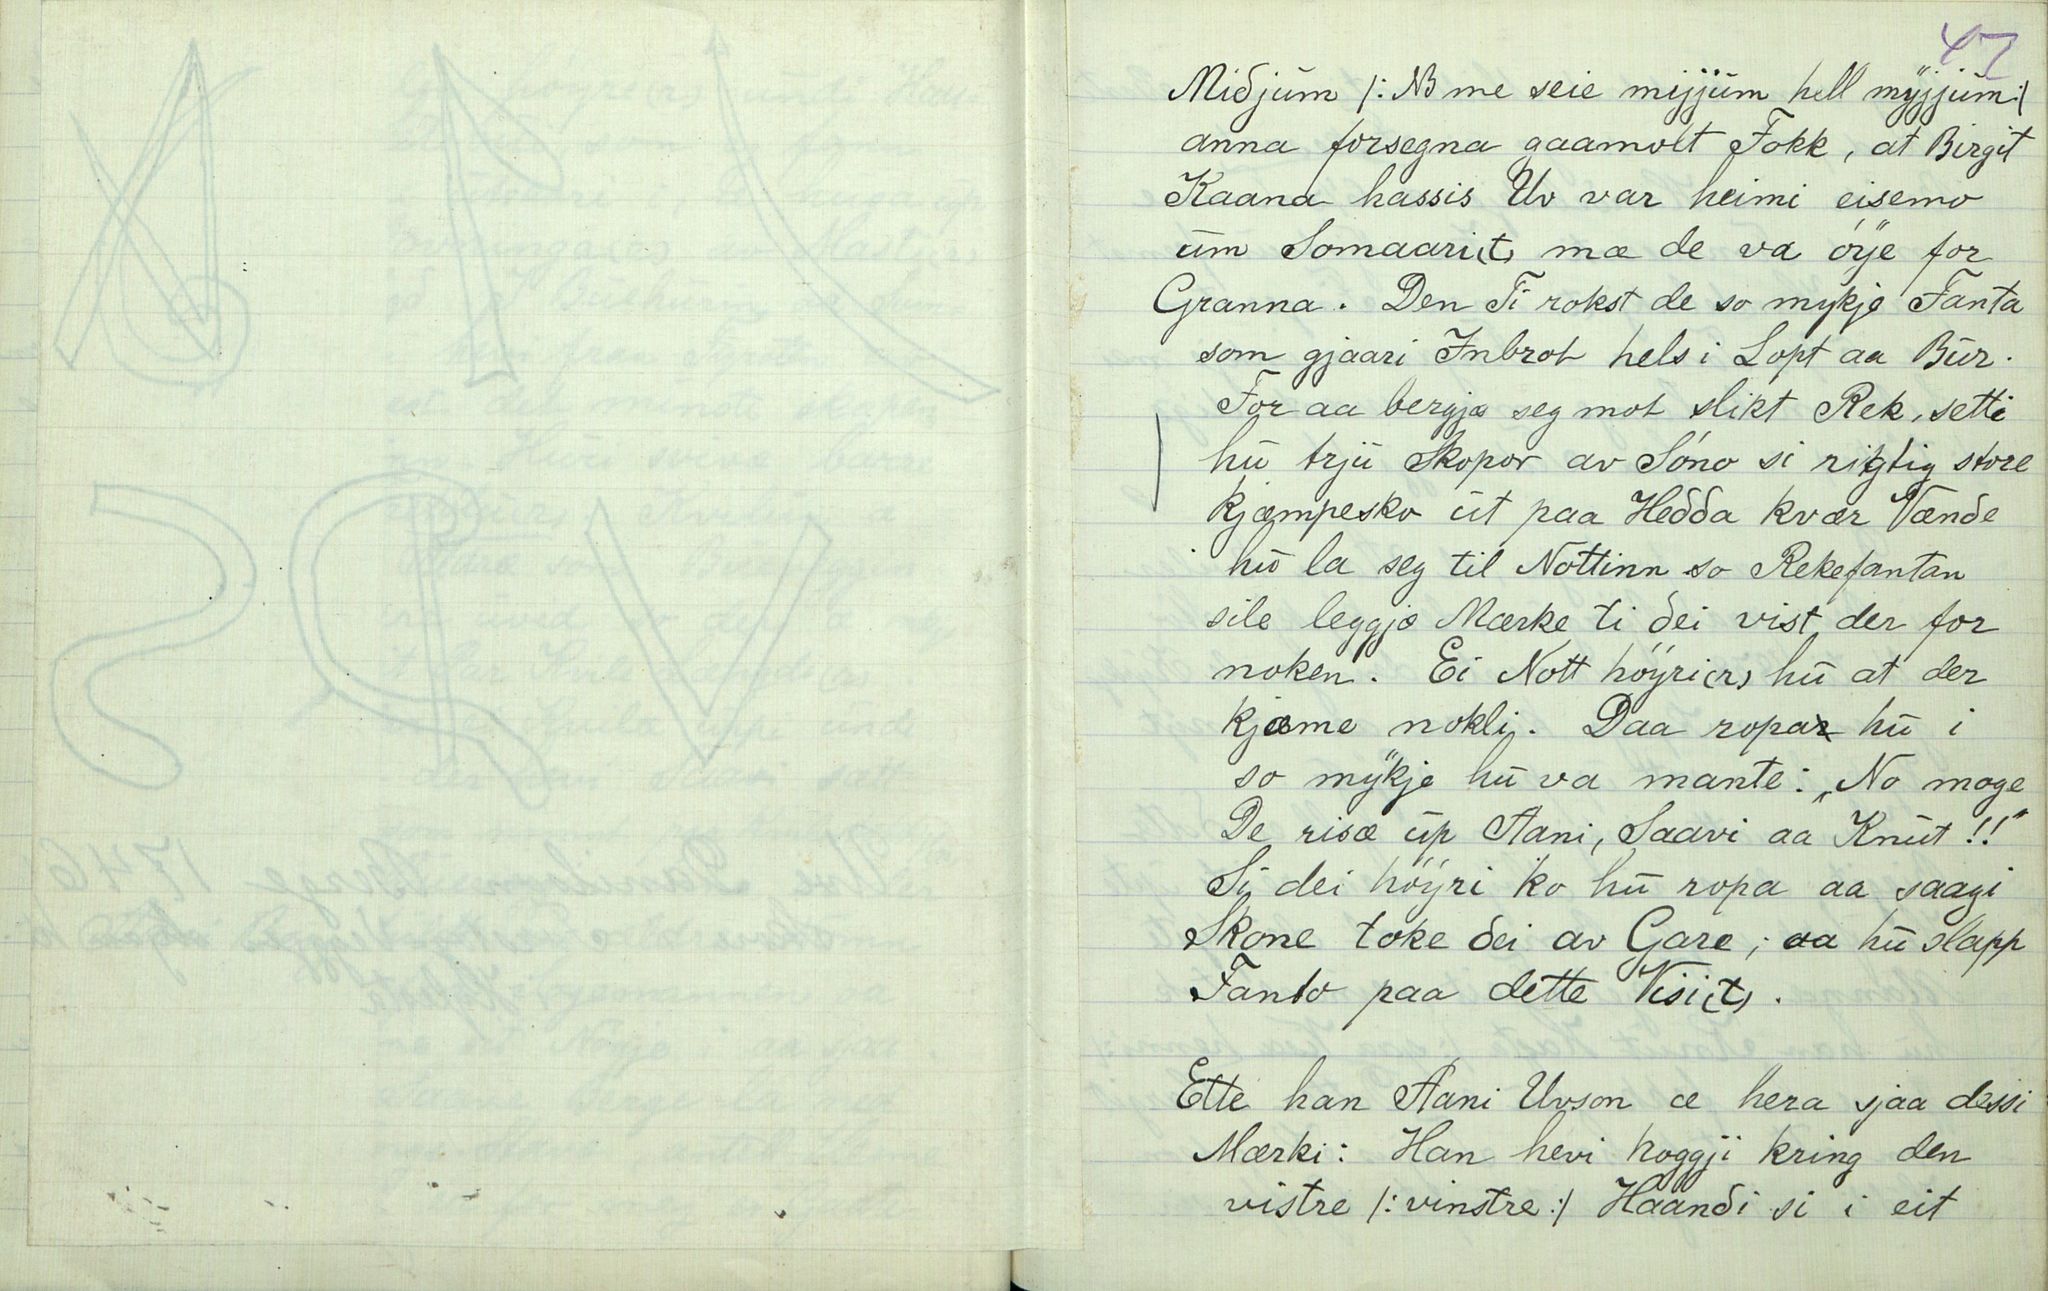 47
Miðjum /: NB me seie mijjum hell myjjum :/
anna forsegna gaamolt Fokk, at Birgit
Kaana hassis Uv var heimi eisemo
um Somaari(t) mæ de va öyje for
Granna. Den Ti rokst de so mykje Fanta
som gjaari Inbrot hels i Lopt aa Bur.
For aa bergja seg mot slikt Rek, setti
hu trju Skopor av Sóno si rigtig store
kjæmpesko ut paa Heðða kvær Vænde
hu la seg til Nottinn so Rekefantan
sile leggja Mærke ti ðei vist der for
noken. Ei Nott höyri(r) hu at der
kjæme nokli. Daa ropar hu i
so mykje hu va mante: „No moge
De risa up Aani, Saavi aa Knut!!"
Sy dei höyri ko hu ropa aa saagi
Skone toke ðei av Gare; aa hu slapp
Fanto paa dette Visi(t).
Ette han Aani Uvson æ hera sjaa dessi
Mærki: Han hevi hoggji kring den
vistre /: vinstre :/ Haanði si i eit